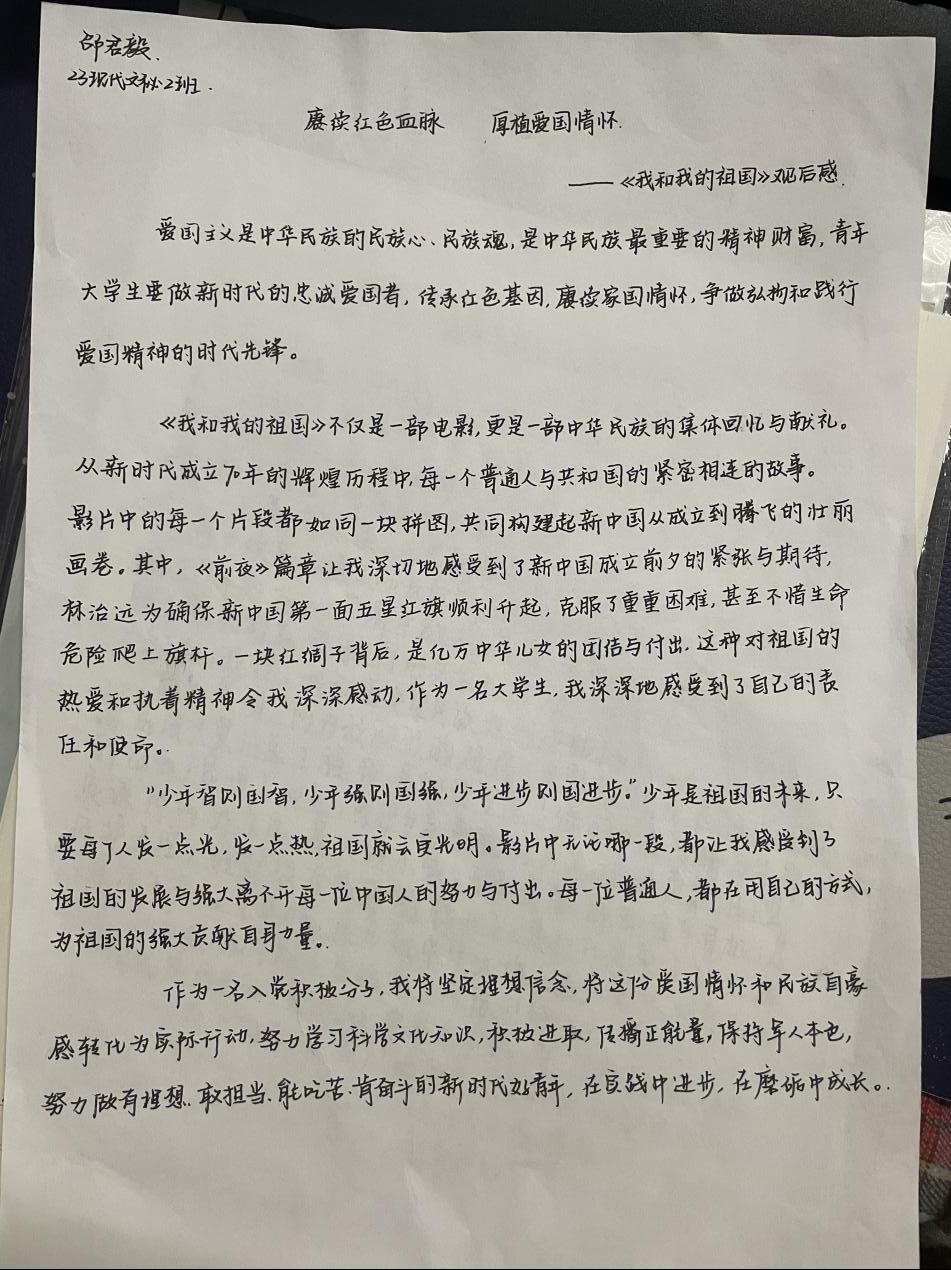 邵君毅.
23现代文秘2班.
赓续红色血脉 厚植爱国情怀.
——《我和我的祖国》观后感.
爱国主义是中华民族的民族心、民族魂,是中华民族最重要的精神财富,青年
大学生要做新时代的忠诚爱国者,传承红色基因,赓续家国情怀,争做弘扬和践行
爱国精神的时代先锋。
《我和我的祖国》不仅是一部电影,更是一部中华民族的集体回忆与献礼。
从新时代成立70年的辉煌历程中,每一个普通人与共和国的紧密相连的故事。
影片中的每一个片段都如同一块拼图,共同构建起新中国从成立到腾飞的壮丽
画卷。其中,《前夜》篇章让我深切地感受到了新中国成立前夕的紧张与期待,
林治远为确保新中国第一面五星红旗顺利升起,克服了重重困难,甚至不惜生命
危险爬上旗杆。一块红绸子背后,是亿万中华儿女的团结与付出,这种对祖国的
热爱和执着精神令我深深感动,作为一名大学生,我深深地感受到了自己的责
任和使命。
"少年智则国智,少年强则国强,少年进步则国进步。"少年是祖国的未来,只
要每个人发一点光,发一点热,祖国就会更光明。影片中无论哪一段,都让我感受到了
祖国的发展与强大离不开每一位中国人的努力与付出。每一位普通人,都在用自己的方式,
为祖国的强大贡献自身力量。
作为一名入党积极分子,我将坚定理想信念,将这份爱国情怀和民族自豪
感转化为实际行动,努力学习科学文化知识,积极进取,传播正能量,保持军人本色,
努力做有理想、敢担当、能吃苦、肯奋斗的新时代好青年,在实践中进步,在磨砺中成长。